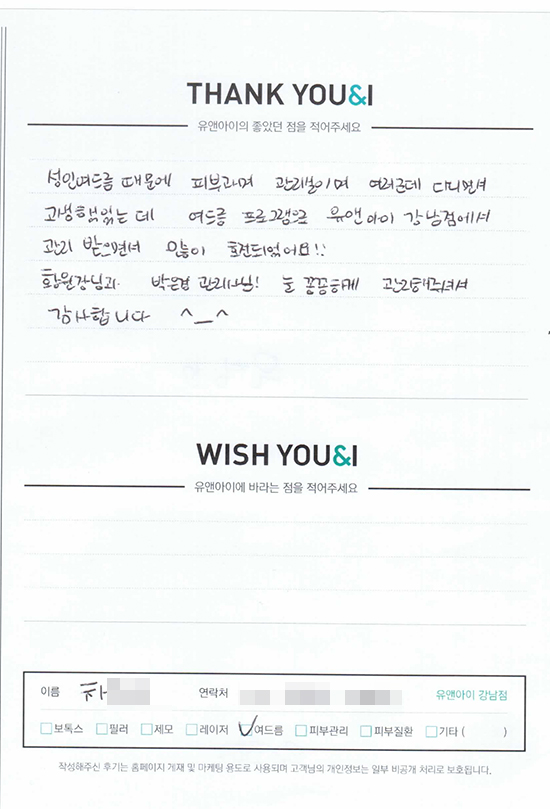 THANK YOU&I
유앤아이의 좋았던 점을 적어주세요
성인여드름 때문에 피부과며 관리실이며 여러군데 다니면서
고생했었는데 여드름 프로그램으로 유앤아이 강남점에서
관리 받으면서 많이 호전되었어요!!
황원장님과 박은경 관리사님! 늘 꼼꼼하게 관리해주셔서
감사합니다 ^__^
WISH YOU&I
유앤아이에 바라는 점을 적어주세요
이름 차 연락처 유앤아이 강남점
보톡스 필러 제모 레이저 여드름 피부관리 피부질환 기타 ( )
작성해주신 후기는 홈페이지 게재 및 마케팅 용도로 사용되며 고객님의 개인정보는 일부 비공개 처리로 보호됩니다.